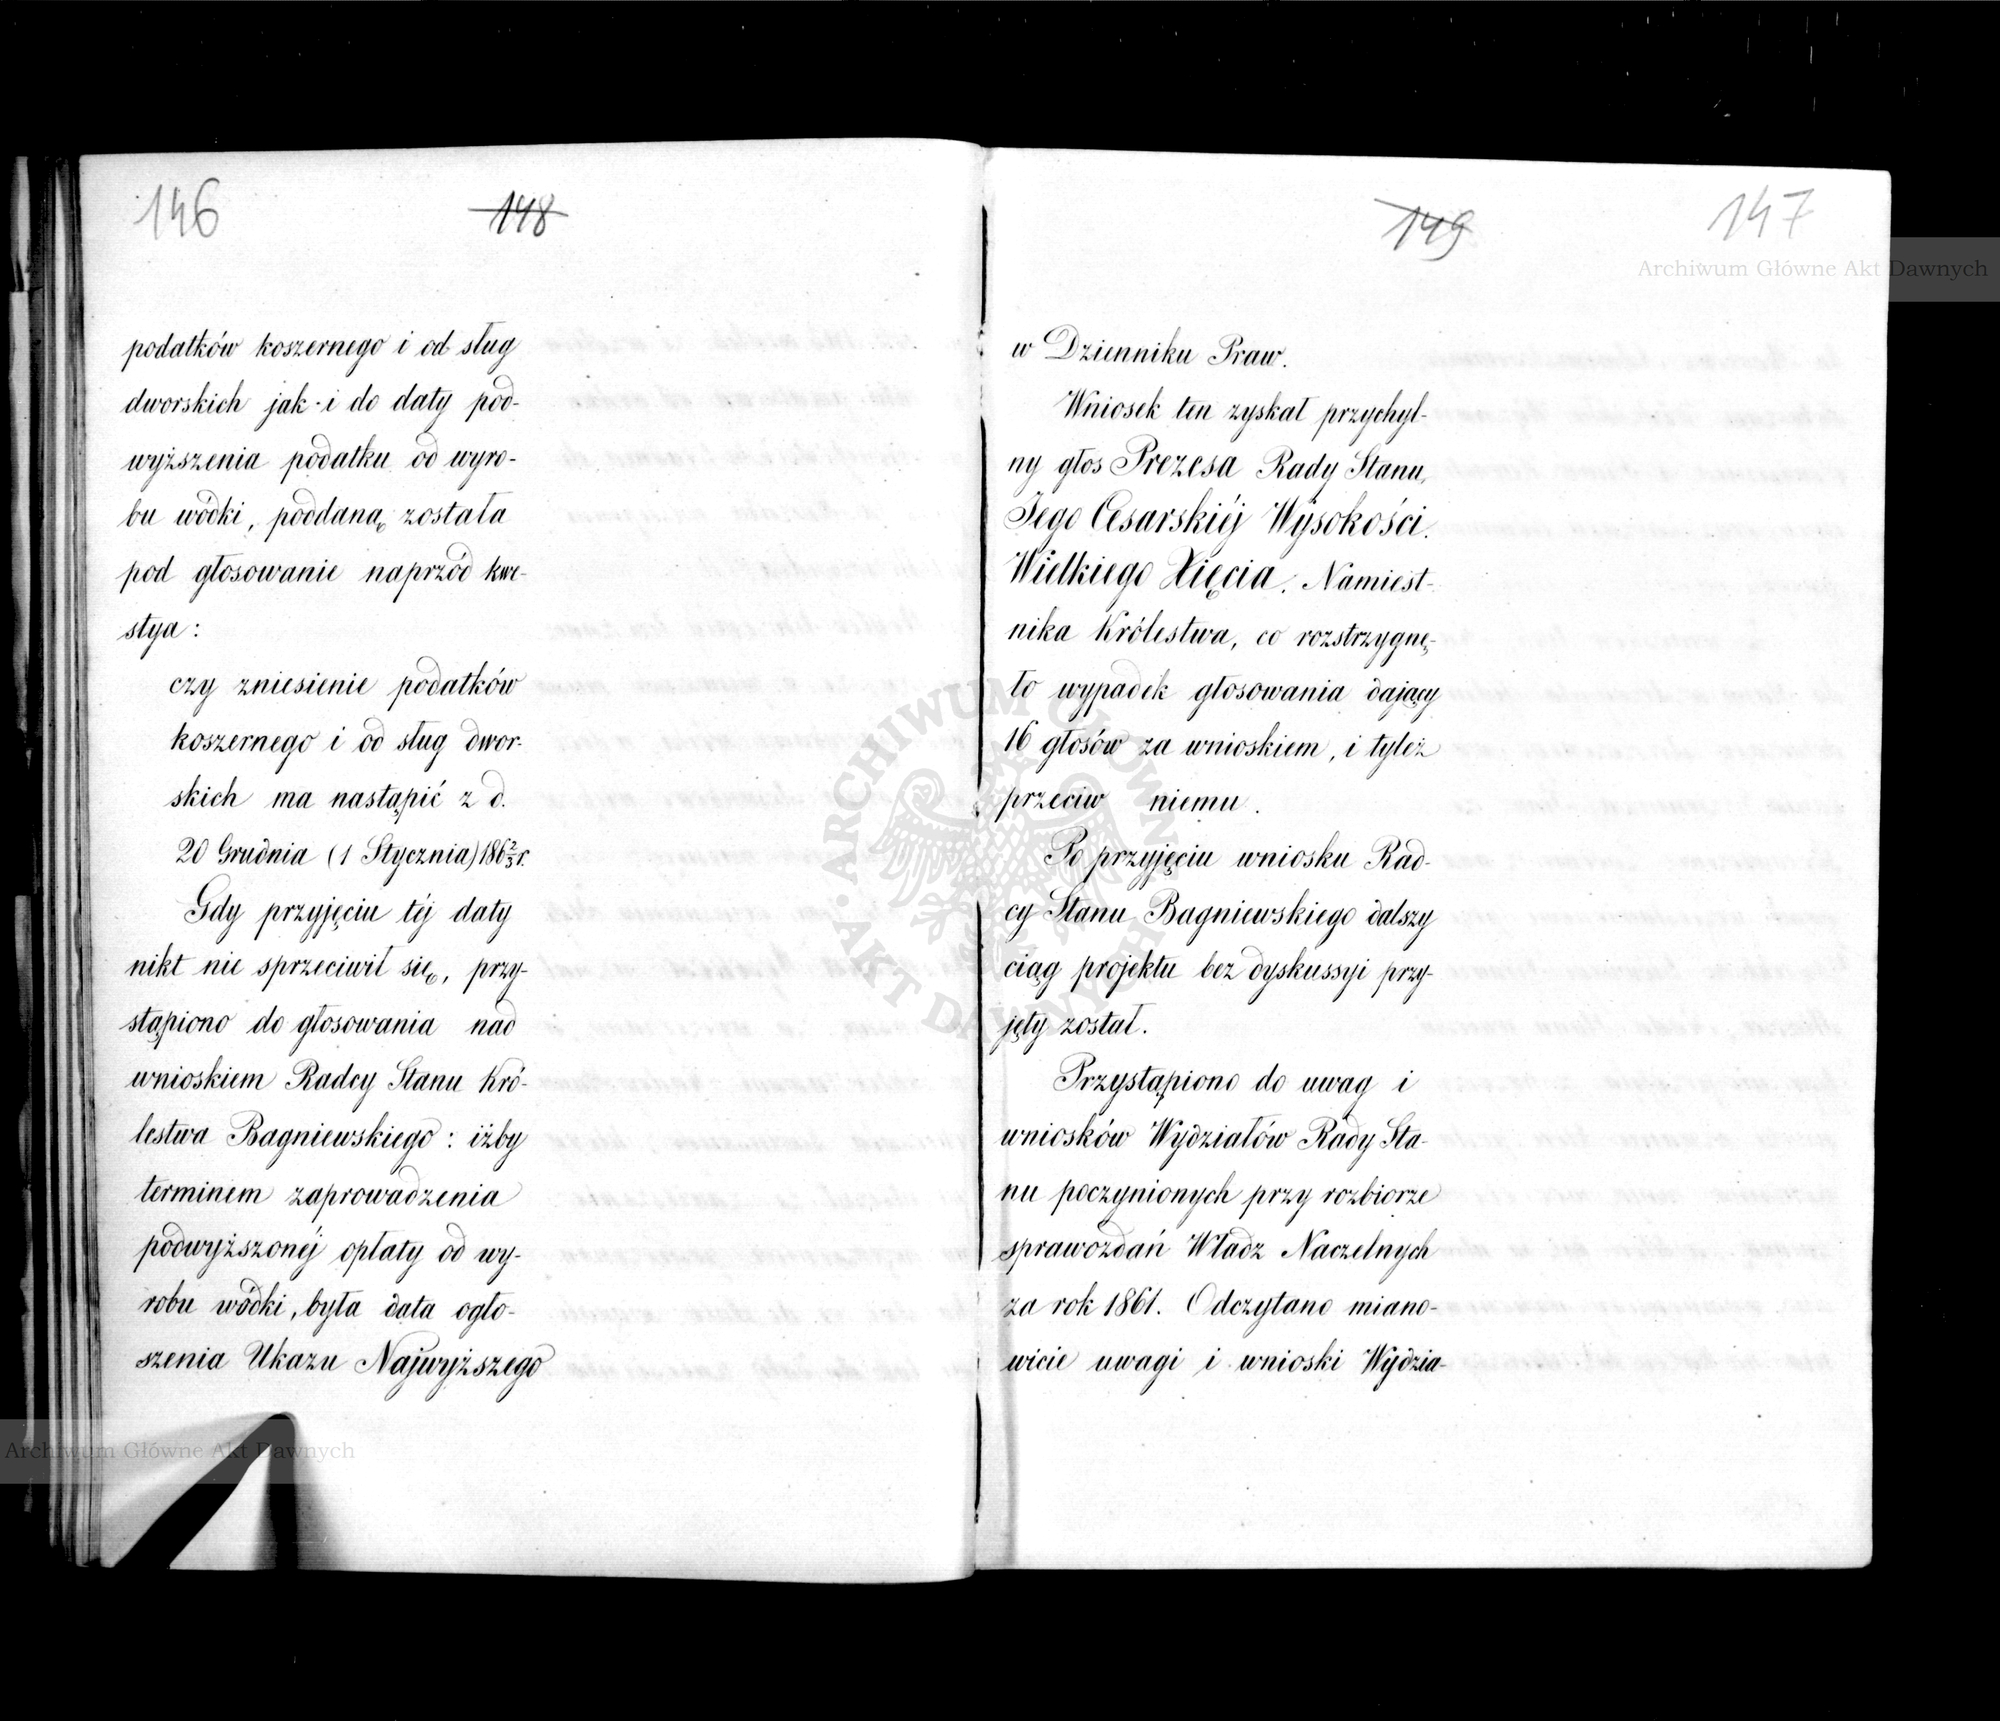 146
148
podatków koszernego i od sług
dworskich jak i do daty pod-
wyższenia podatku od wyro-
bu wódki, poddaną została
pod głosowanie naprzód kwe-
stya:
czy zniesienie podatków
koszernego i od sług dwor-
skich ma nastąpić z d.
20 Grudnia (1 Stycznia) 186 2/3 r.
Gdy przyjęciu téj daty
nikt nie sprzeciwił się, przy-
stąpiono do głosowania nad
wnioskiem Radcy Stanu Kró-
lestwa Bagniewskiego: iżby
terminem zaprowadzenia
podwyższonéj opłaty od wy-
robu wódki, była data ogło-
szenia Ukazu Najwyższego
149
147
Archiwum Główne Akt Dawnych
w Dzienniku Praw.
Wniosek ten zyskał przychyl-
ny głos Prezesa Rady Stanu,
Jego Cesarskiéj Wysokości
Wielkiego Xięcia, Namiest-
nika Królestwa, co rozstrzygnę-
ło wypadek głosowania dający
16 głosów za wnioskiem, i tyleż
przeciw niemu.
Po przyjęciu wniosku Rad-
cy Stanu Bagniewskiego dalszy
ciąg projektu bez dyskussyi przy-
jęty został.
Przystąpiono do uwag i
wniosków Wydziałów Rady Sta-
nu poczynionych przy rozbiorze
sprawozdań Władz Naczelnych
za rok 1861. Odczytano miano-
wicie uwagi i wnioski Wydzia-
ARCHIWUM GŁÓWNE
AKT DAWNYCH
Archiwum Główne Akt Dawnych